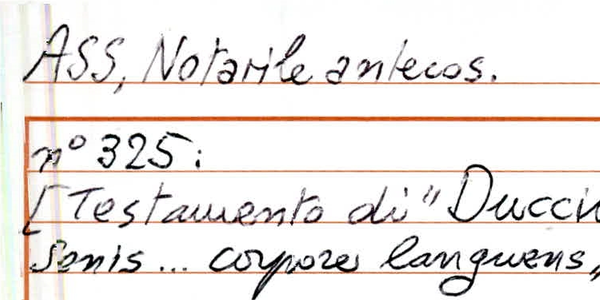 ASS, Notarile antecos.
n° 325:
[Testamento di "Duccin
Senis... corpore languens,